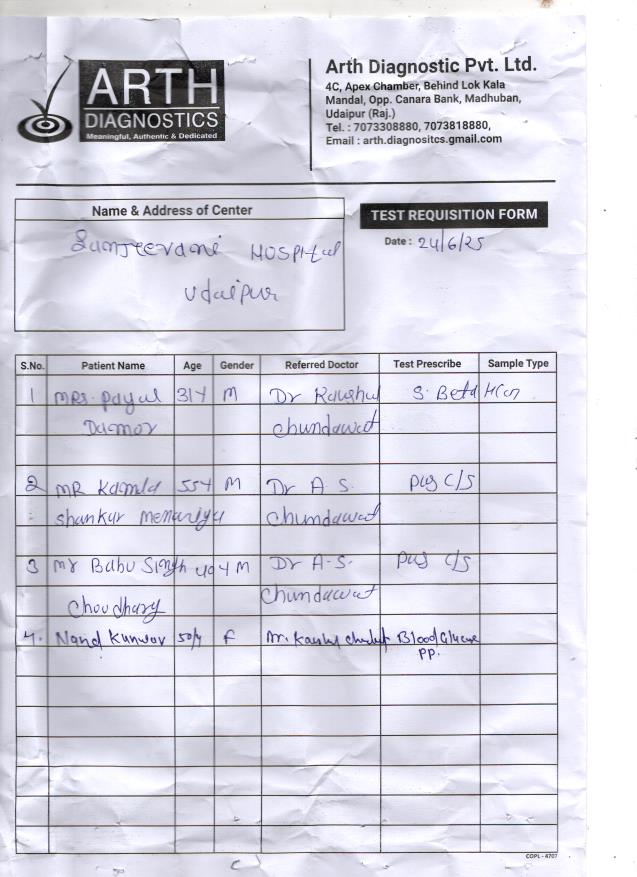 ARTH
DIAGNOSTICS
Meaningful, Authentic & Dedicated
Arth Diagnostic Pvt. Ltd.
4C, Apex Chamber, Behind Lok Kala
Mandal, Opp. Canara Bank, Madhuban,
Udaipur (Raj.)
Tel. : 7073308880, 7073818880,
Email : arth.diagnositcs.gmail.com
Name & Address of Center
Sunjeevani HOSPital
Udaipur
TEST REQUISITION FORM
Date : 24/6/25
S.No. Patient Name Age Gender Referred Doctor Test Prescribe Sample Type
1 MRS. Payal 31Y M Dr Kaushal S. Beta HCG
Damor Chundawat
2 MR Kamla 55Y M Dr A S. pus C/S
shankar Menariya Chundawat
3 Mr Babu Singh M Dr A-S. pus C/S
Choudhary Chundawat
4. Nand Kunwar 50/y F Blood Glucose
PP.
COPL - 4707